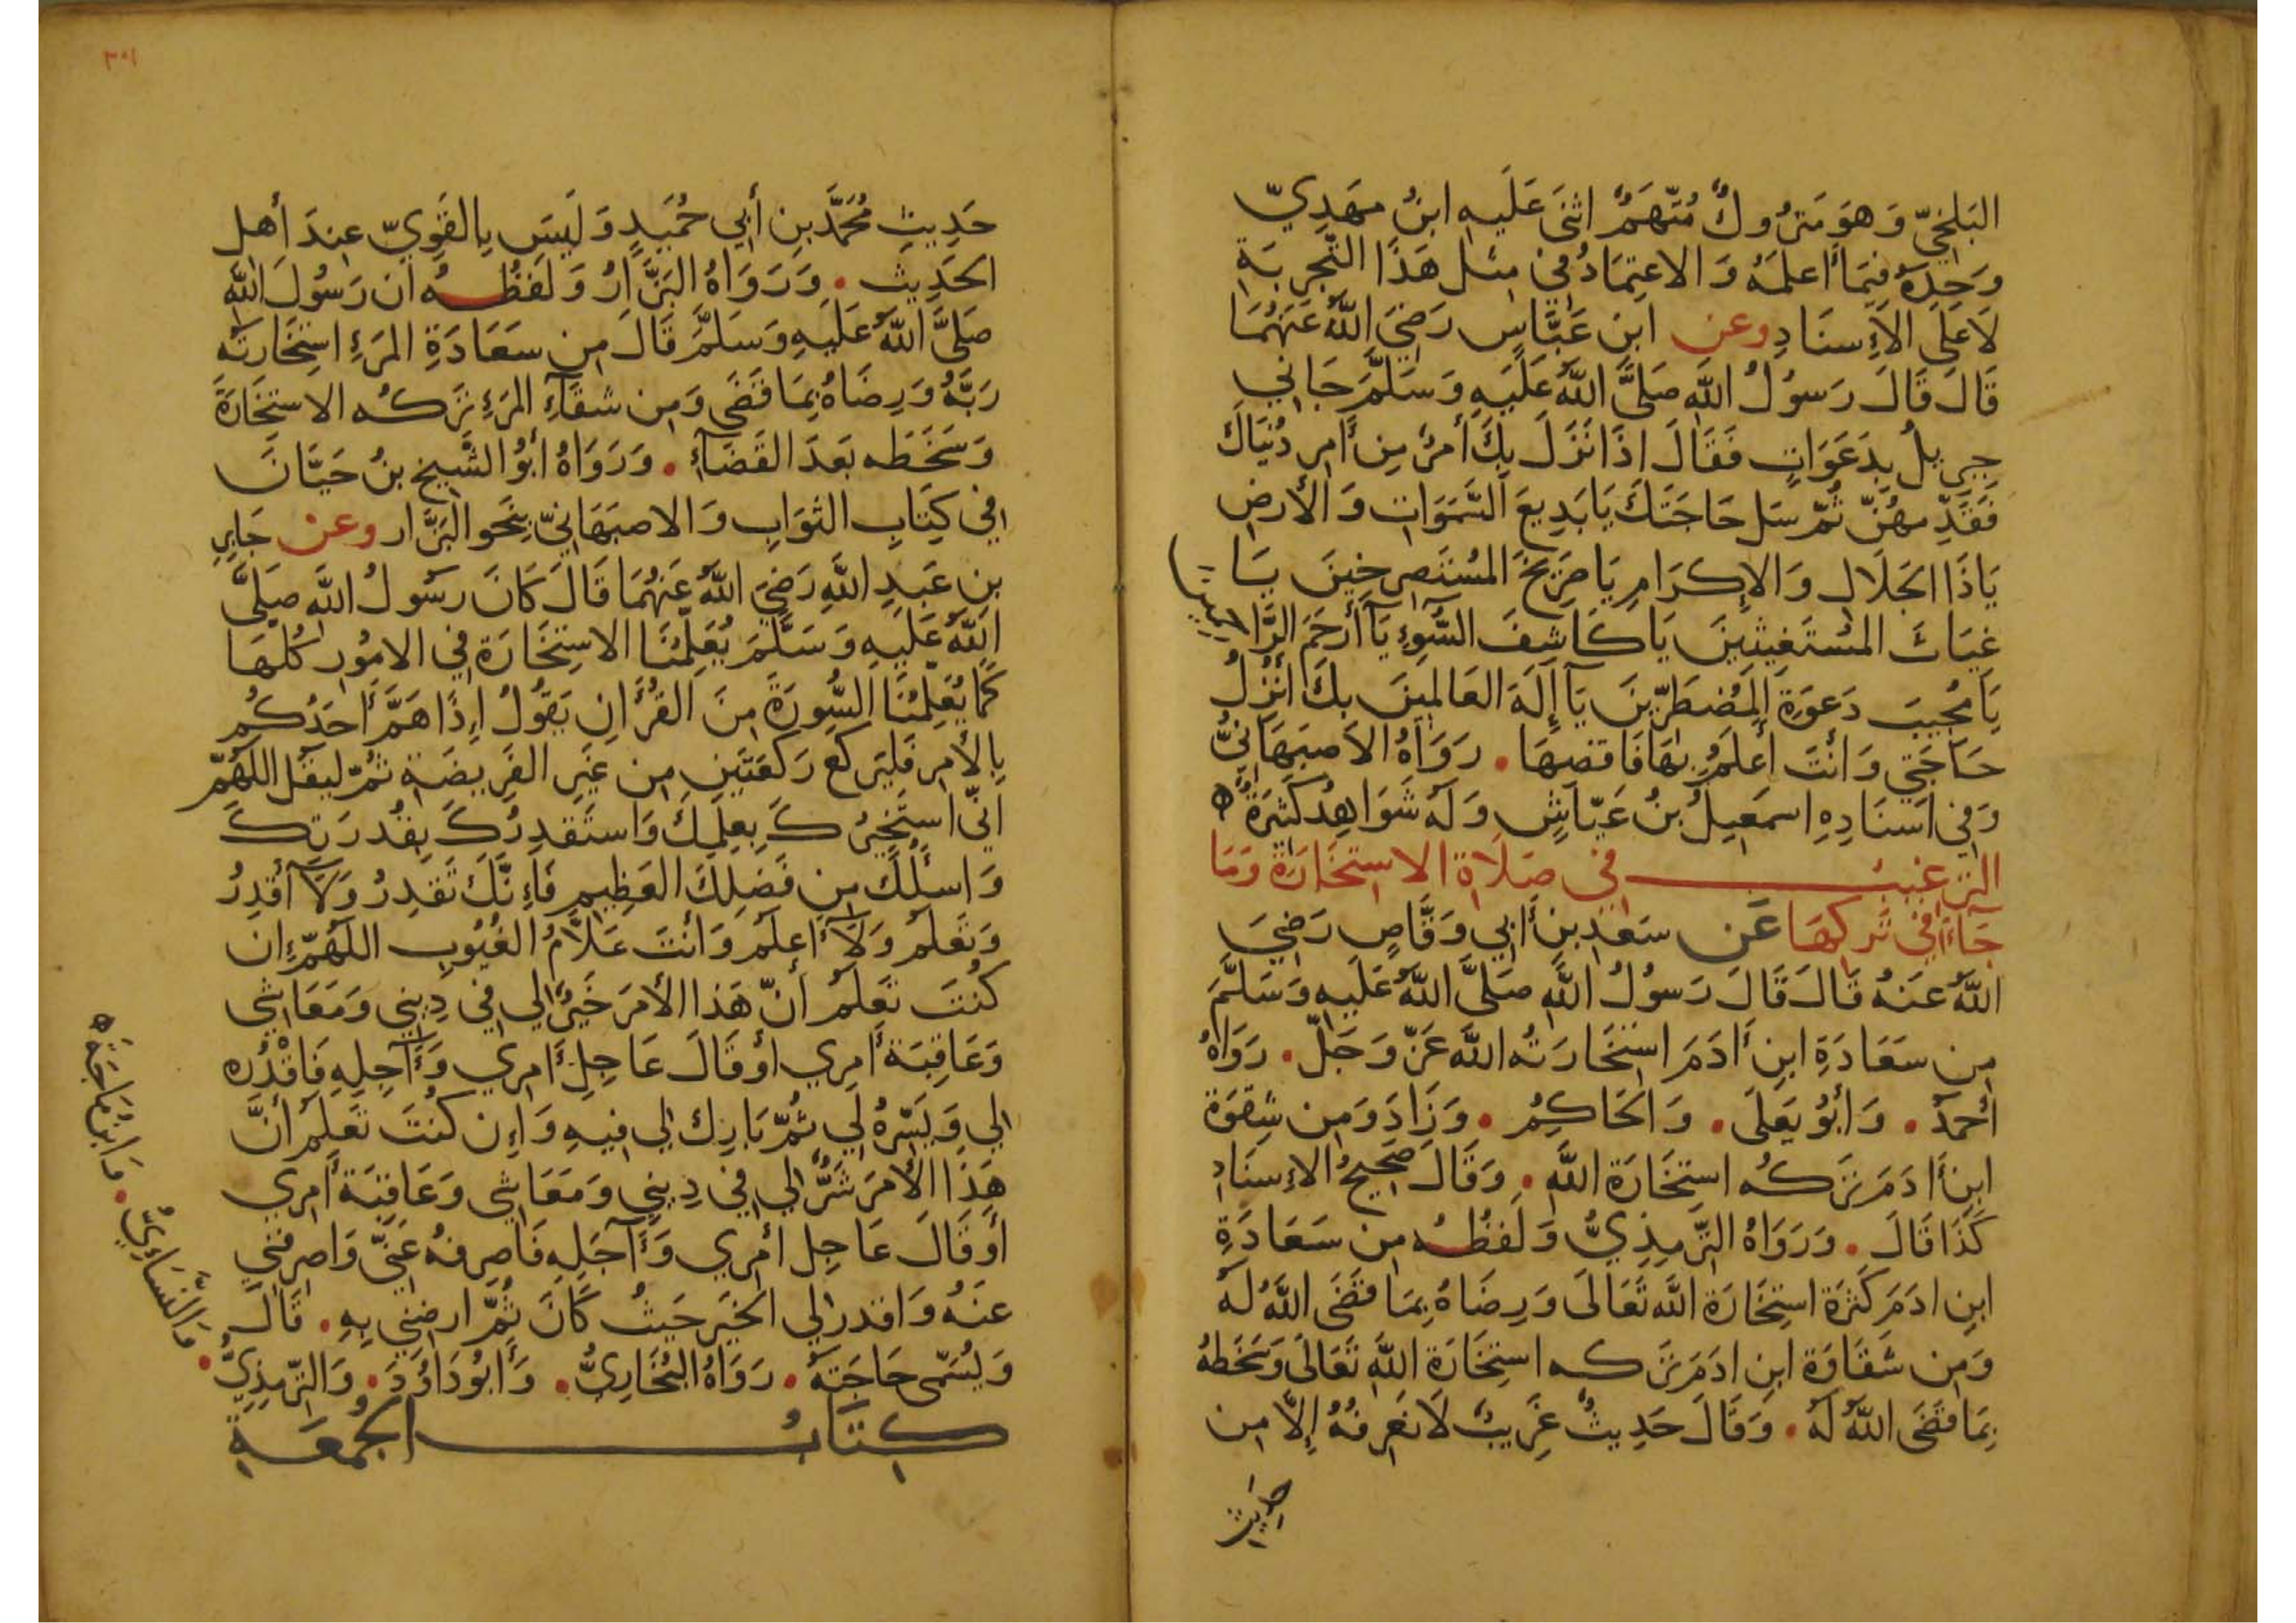 البَلخيّ وَهوَ مَترُوكٌ مُتّهَمٌ اثنَى عَلَيه ابنُ مهَديّ
وَحدَهُ فيمَا أعلمَهُ وَالاعتِمَادُ في مثل هَذَا التّجربَةِ
لَا عَلَى الإسنَادِ وعن ابن عَبَّاسٍ رَضيَ اللهُ عَنهُمَا
قَالَ قَالَ رَسوُلُ اللهِ صَلَّى اللهُ عَلَيهِ وَسَلَّمَ جَاني
جبريلُ بدَعَوَاتٍ فَقَالَ اذَا نَزَلَ بكَ أمرٌ مِن أمر دُنيَاكَ
فَقَدِّمهُنّ ثُمّ سَل حَاجَتَكَ يَا بَديعَ السَّمَوَات وَالأرض
يَا ذَا الجَلَال وَالإكرَامِ يَا صَريخَ المسُتَصرخينَ يَا
غيَاثَ المسُتَغيثينَ يَا كَاشفَ السُّوءِ يَا أرحَمَ الرَّاحمينَ
يَا مُجيبَ دَعوَةِ المُضطَرّينَ يَا إلَهَ العَالمينَ بكَ أنزلُ
حَاجَتي وَانتَ أعلَمُ بهَا فَاقضهَا . رَوَاهُ الاَصبَهَانيُّ
وَفي اسنَادِهِ اسمَعيلُ بنُ عَيّاشٍ وَلَهُ شَوَاهِدُ كَثيرَةٌ ه
الترغيبُ في صَلَاة الاستخَارَة وَمَا
جَاءَ في تَركهَا عَن سَعَد بن أبي وَقَّاصٍ رَضيَ
اللهُ عنَهُ قَالَ قَالَ رَسوُلُ اللهِ صَلَّى اللهُ عَلَيه وَسَلَّمَ
من سَعَادَةِ ابنِ أدَمَ استخَارَتُه اللهَ عَزّ وَجَلّ . رَوَاهُ
أحمَدُ . وَأبوُ يَعلَى . وَالحَاكمُ . وَزَادَ وَمن شقوَة
ابن أدَمَ تَركُه استِخَارَة اللهِ . وَقَالَ صَحيحُ الإسنَادِ
كَذَا قَالَ . وَرَوَاهُ التّرمِذيُّ وَلَفظُه من سَعَادَةِ
ابنِ ادَمَ كَثرَة استِخَارَة اللهِ تَعَالَى وَرِضَاهُ بمَا قَضَى اللهُ لَهُ
وَمن شَقَاوَة ابن ادَمَ تَركه استِخَارَة اللهِ تَعَالَى وَسَخَطهُ
بمَا قَضَى اللهُ لَهُ . وَقَالَ حَديثٌ غَريبٌ لَا نَعرفهُ إلّا من
حديث
٣٠١
حَديثِ مُحمَّد بن أبي حُمَيدٍ وَلَيسَ بالقَويّ عندَ أهل
الحَديث . وَرَوَاهُ البَزَّارُ وَلَفظُه ان رَسوُلَ اللهِ
صَلَّى اللهُ عَلَيهِ وَسَلَّمَ قَالَ من سعَادَةِ المَرءِ استِخَارَتُه
رَبَّهُ وَرِضَاهُ بمَا قَضَى وَمن شقَاءِ المَرءِ تَركُه الاستِخَارَةَ
وَسَخَطه بَعدَ القَضَاءِ . وَرَوَاهُ أبوُ الشَّيخ بنُ حَيَّانَ
في كِتَابِ الثوَابِ وَالاصبَهَانيّ بنَحو البَزَّار وعن جَابرِ
بن عَبدِ اللهِ رَضيَ اللهُ عَنهُمَا قَالَ كَانَ رَسوُلُ اللهِ صَلَّى
اللهُ عَلَيهِ وَسَلَّمَ يُعَلّمُنَا الاستِخَارَة في الاموُر كُلّهَا
كَمَا يُعَلّمُنَا السُّورَةَ منَ القُرأن يَقوُلُ إذَا هَمَّ أحَدُكُم
بالأمر فَليَركَع رَكعَتَين من غَير الفَريضَة ثُمّ ليقُل اللهُمّ
اني استَخيرُكَ بعلمكَ وَاستَقدرُكَ بقُدرَتكَ
وَاسئَلُكَ من فَضلكَ العَظيم فَإنَّكَ تَقدرُ وَلَا أقدرُ
وَتَعلَمُ وَلَا أعلَمُ وَأنتَ عَلَّامُ الغُيوُب اللهُمّ إن
كُنتَ تَعلَمُ أنّ هَذا الأمرَ خَيرٌ لي في ديني وَمَعَاشي
وَعَاقبَة أمري أو قَالَ عَاجل أمري وَآجِلِهِ فَاقْدُره
لي وَيَسّرهُ لي ثُمّ بَارك لي فيهِ وَإن كُنتَ تَعلَم أنَّ
هَذَا الأمرَ شَرٌّ لي في ديني وَمَعَاشي وَعَاقبَة أمري
أو قَالَ عَاجل أمري وَآجَلِهِ فَاصرفهُ عَنّي وَاصرفني
عنَهُ وَاقدر لي الخَيرَ حَيثُ كَانَ ثُمَّ ارضني بِهِ . قَالَ
وَيُسَمّى حَاجَتَهُ . رَوَاهُ البُخَاريُّ . وَأبوُ دَاوُدَ . وَالتّرمِذيُّ
. وَالنَّسَاءيُّ . وَابنُ مَاجَة ه
كتَابُ الجُمعَةِ